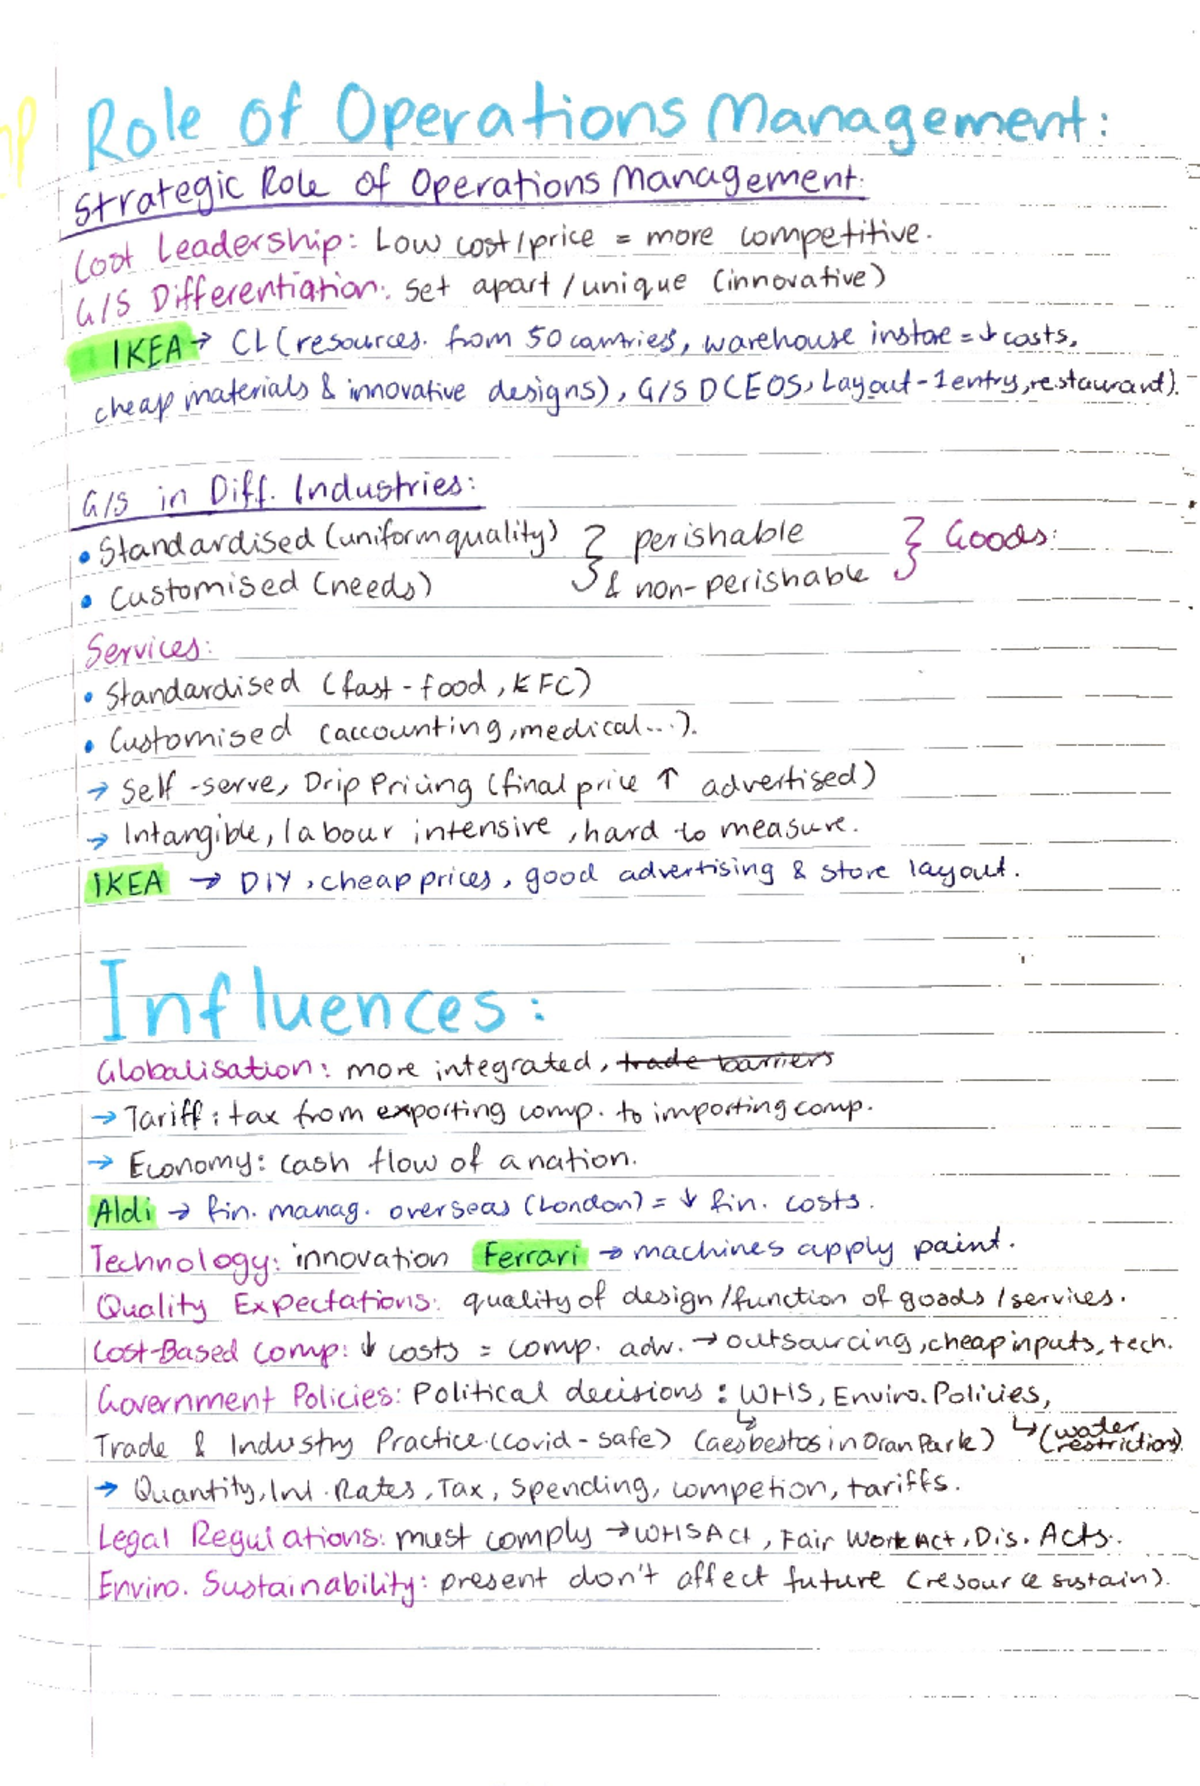 Role of Operations Management:
Strategic Role of Operations Management:
Cost Leadership: Low cost/price = more competitive.
G/S Differentiation: Set apart/unique (innovative)
IKEA → CL (resources. from 50 countries, warehouse instore = ↓ costs,
cheap materials & innovative designs), G/S D (EOS, Layout - 1 entry, restaurant).
G/S in Diff. Industries:
• Standardised (uniform quality) } perishable } Goods:
• Customised (needs) & non-perishable
Services:
• Standardised (fast-food, KFC)
• Customised (accounting, medical...).
→ Self-serve, Drip Pricing (final price ↑ advertised)
→ Intangible, labour intensive, hard to measure.
IKEA → DIY, cheap prices, good advertising & store layout.
Influences:
Globalisation: more integrated, trade barriers
→ Tariff: tax from exporting comp. to importing comp.
→ Economy: cash flow of a nation.
Aldi → fin. manag. overseas (London) = ↓ fin. costs.
Technology: innovation Ferrari → machines apply paint.
Quality Expectations: quality of design/function of goods/services.
Cost-Based Comp: ↓ costs = comp. adv. → outsourcing, cheap inputs, tech.
Government Policies: Political decisions: WHS, Enviro. Policies,
Trade & Industry Practice. (Covid-safe) ↳ (aesbestos in Oran Park) ↳ (water restriction).
→ Quantity, Int. Rates, Tax, Spending, competion, tariffs.
Legal Regulations: must comply → WHS Act, Fair Work Act, Dis. Acts.
Enviro. Sustainability: present don't affect future (resource sustain).